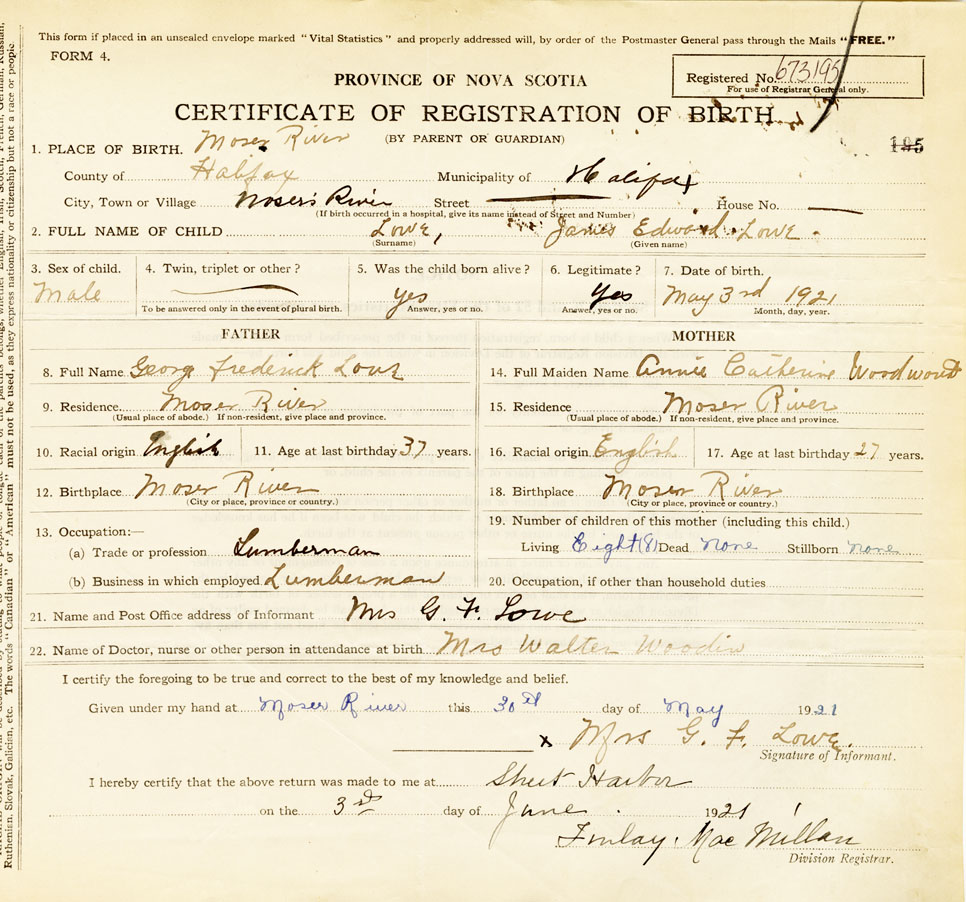 This form if placed in an unsealed envelope marked "Vital Statistics" and properly addressed will, by order of the Postmaster General pass through the Mails "FREE."
FORM 4.
Registered No. 673195
For use of Registrar General only.
PROVINCE OF NOVA SCOTIA
CERTIFICATE OF REGISTRATION OF BIRTH
(BY PARENT OR GUARDIAN)
195
1. PLACE OF BIRTH. Moser River
County of Halifax Municipality of Halifax
City, Town or Village Moser's River Street House No.
(If birth occurred in a hospital, give its name instead of Street and Number)
2. FULL NAME OF CHILD Lowe, James Edward Lowe.
(Surname) (Given name)
3. Sex of child. 4. Twin, triplet or other? 5. Was the child born alive? 6. Legitimate? 7. Date of birth.
Male yes Yes May 3rd 1921
To be answered only in the event of plural birth. Answer, yes or no. Answer, yes or no. Month, day, year.
FATHER MOTHER
8. Full Name George Frederick Lowe 14. Full Maiden Name Annie Catherine
9. Residence. Moser River 15. Residence Moser River
(Usual place of abode.) If non-resident, give place and province. (Usual place of abode.) If non-resident, give place and province.
10. Racial origin English 11. Age at last birthday 37 years. 16. Racial origin English 17. Age at last birthday 27 years.
12. Birthplace Moser River 18. Birthplace Moser River
(City or place, province or country.) (City or place, province or country.)
13. Occupation:— 19. Number of children of this mother (including this child.)
(a) Trade or profession Lumberman Living Eight (8) Dead none Stillborn none
(b) Business in which employed Lumberman 20. Occupation, if other than household duties
21. Name and Post Office address of Informant Mrs G. F. Lowe
22. Name of Doctor, nurse or other person in attendance at birth Mrs Walter Woodin
I certify the foregoing to be true and correct to the best of my knowledge and belief.
Given under my hand at Moser River this 30th day of May 1921
x Mrs G. F. Lowe.
Signature of Informant.
I hereby certify that the above return was made to me at Sheet Harbor
on the 3rd day of June. 1921
Finlay. MacMillan
Division Registrar.
Ruthenian, Slovak, Galician, etc. The words "Canadian" or "American" must not be used, as they express nationality or citizenship but not a race or people